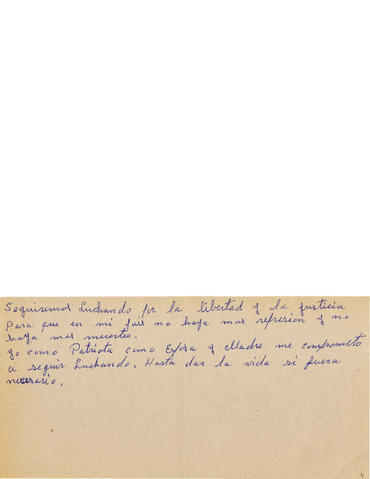 Seguiremos Luchando por la libertad y la justicia
Para que en mi pais no haya mas represion y no
haya mas muertes.
yo como Patriota como Esposa y Madre me comprometo
a seguir Luchando. Hasta dar la vida si fuera
necesario.